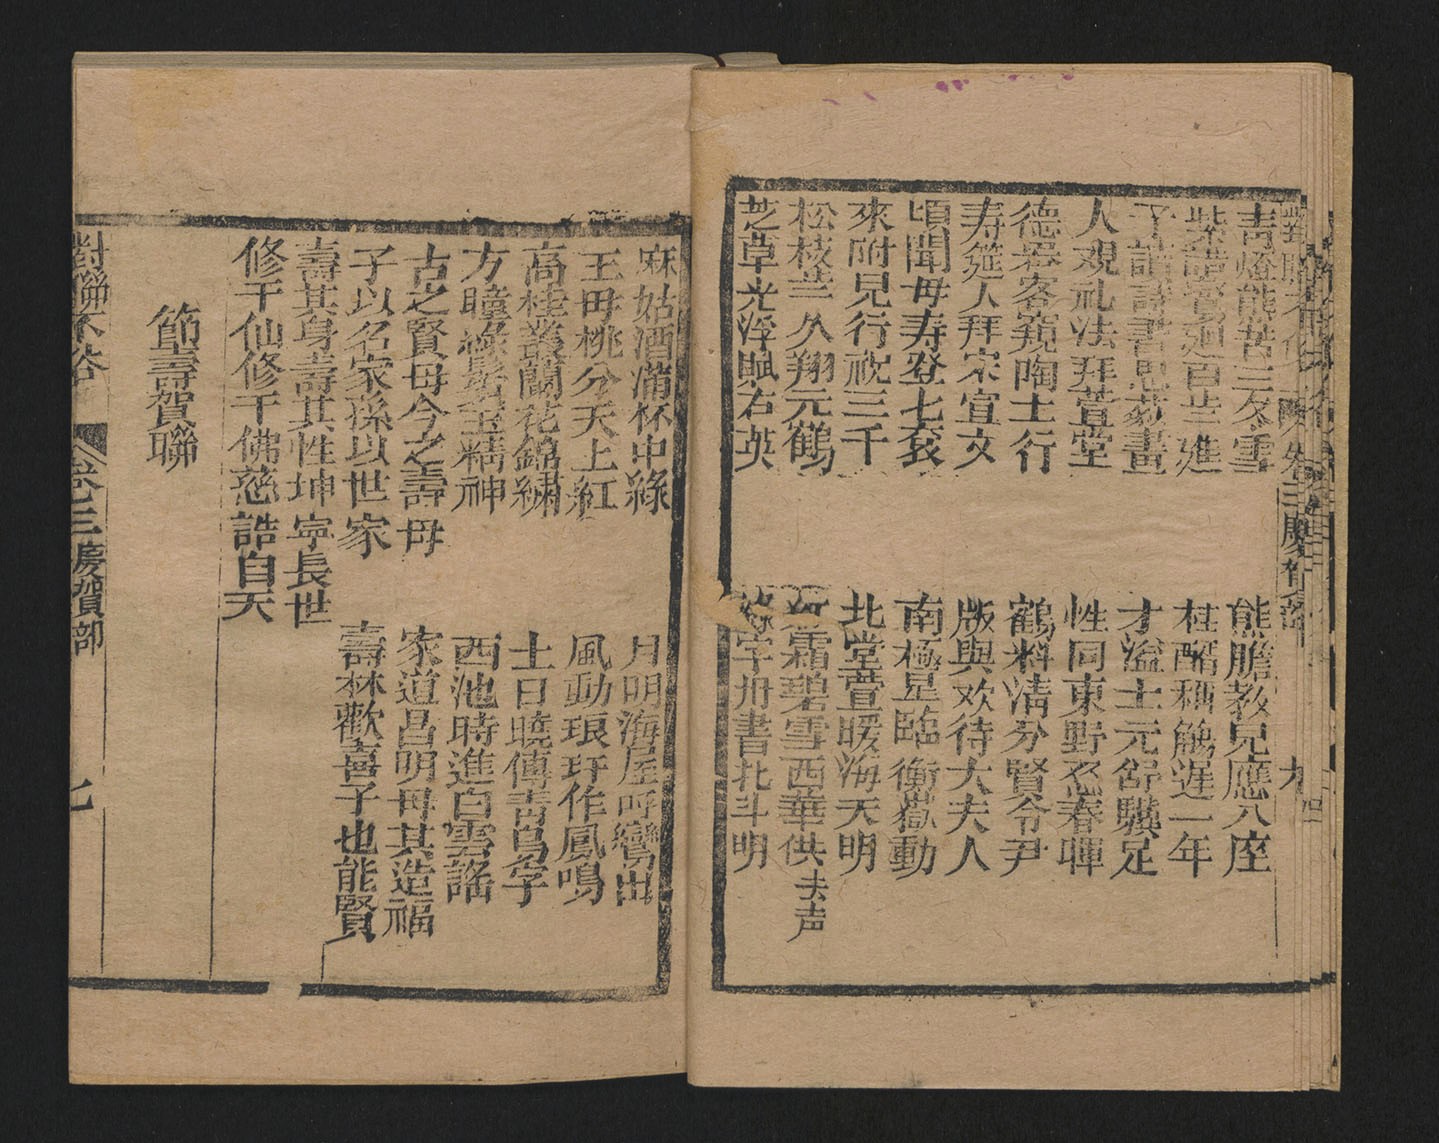 青燈能苦三冬雪
熊膽教兒應八座
紫誥鸞廻百世進
桂醑稱觴遲一年
子諳詩書忠教畫
才溢士元舒驥足
人覌礼法拜萱堂
性同東野忍春暉
德畧客窺陶士行
鶴料清分賢令尹
寿筵人拜宋宣文
版與欢待大夫人
頃聞毋寿登七袠
南極星臨衡嶽動
來附兒行祝三千
北堂萱暖海天明
松枝芒久翔元鶴
霜碧雪西華供去声
芝草光浮賦石英
字冊書北斗明
麻姑酒滿杯中綠
月明海屋呼鸞出
王毋桃分天上紅
風動琅玕作鳳鳴
高桂叢蘭花錦繡
士日曉傳青鳥字
方瞳綠髩玉精神
西池時進白雲謠
古之賢毋今之壽毋
家道昌明毋其造福
子以名家孫以世家
壽林歡喜子也能賢
壽其身壽其性坤寜長世
修千仙修千佛慈誥自天
節壽賀聯
對聯不俗
卷三慶賀部
七